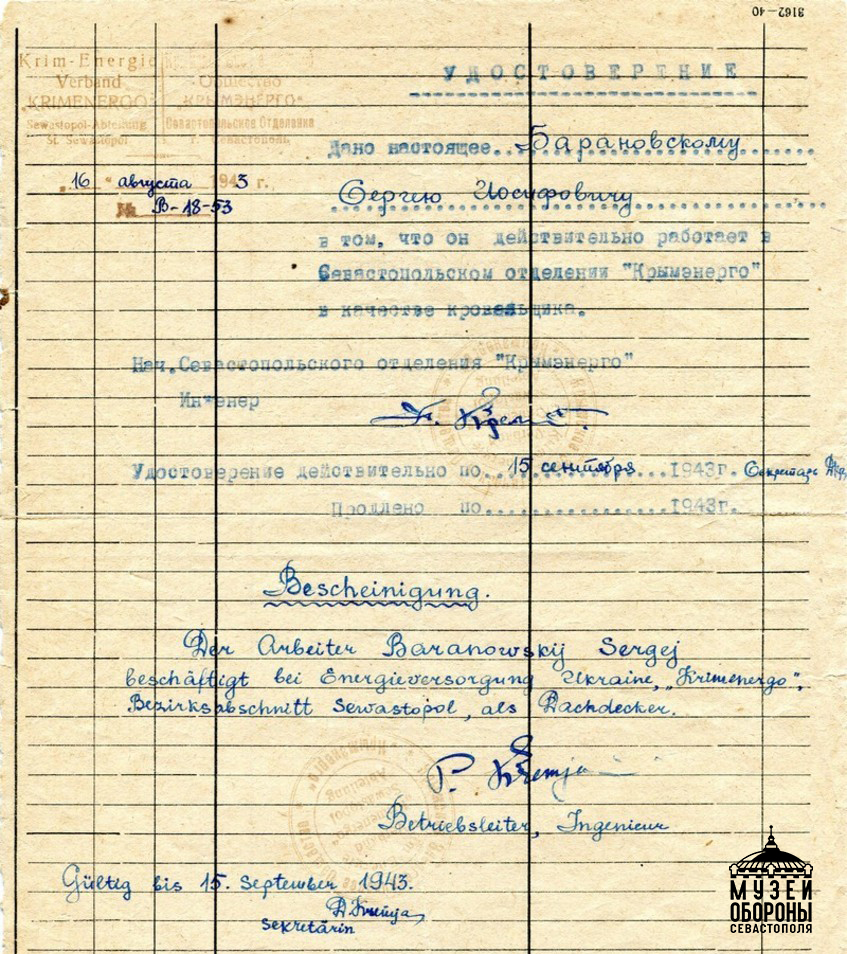 3162-40
Krim-Energie
Verband
"KRIMENERGO"
Sewastopol-Abteilung
St. Sewastopol
Общество
"КРЫМЭНЕРГО"
Севастопольское Отделения
г. Севастополь
"16" августа 1943 г.
№ В-18-53
УДОСТОВЕРЕНИЕ
Дано настоящее...Барановскому
Сергею Иосифовичу
в том, что он действительно работает в
Севастопольском отделении "Крымэнерго"
в качестве кровельщика.
Нач.Севастопольского отделения "Крымэнерго"
Инженер
Удостоверение действительно по...15 сентября...1943г. Секретарь
Продлено по................1943г.
Bescheinigung.
Der Arbeiter Baranowskij Sergej
beschäftigt bei Energieversorgung Ukraine, "Krimenergo",
Bezirksabschnitt Sewastopol, als Dachdecker.
Betriebsleiter, Ingenieur
Gültig bis 15. September 1943.
Sekretärin
МУЗЕЙ
ОБОРОНЫ
СЕВАСТОПОЛЯ